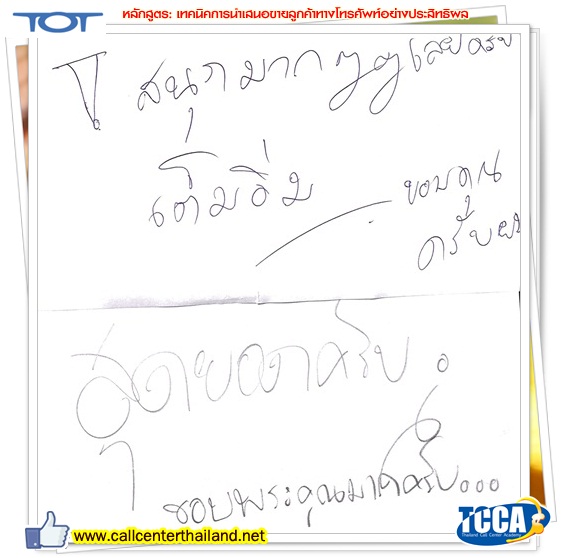 TOT
หลักสูตร: เทคนิคการนำเสนอขายลูกค้าทางโทรศัพท์อย่างประสิทธิผล
สนุกมากๆๆเลยครับ
เต็มอิ่ม
ขอบคุณ
ครับ
สุดยอดครับ
ขอบพระคุณมากครับ...
www.callcenterthailand.net
TCCA
Thailand Call Center Academy